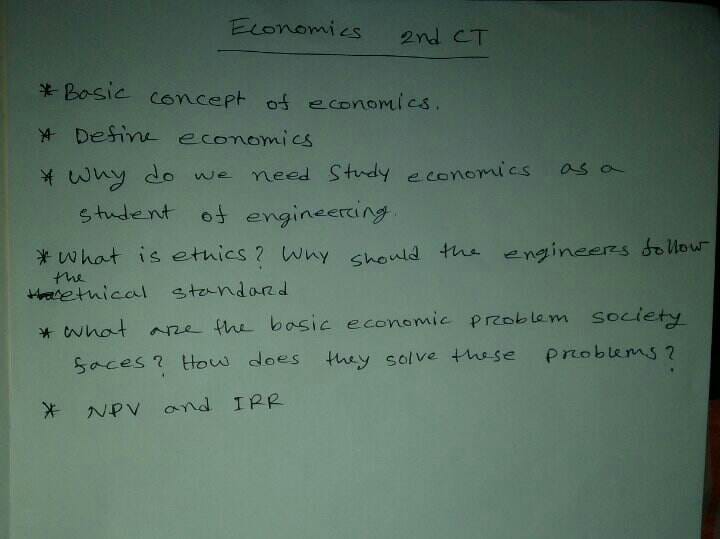 Economics 2nd CT
* Basic concept of economics.
* Define economics
* Why do we need Study economics as a
student of engineering.
* What is ethics? Why should the engineers follow
the
ethical standard
* What are the basic economic problem society
faces? How does they solve these problems?
* NPV and IRR